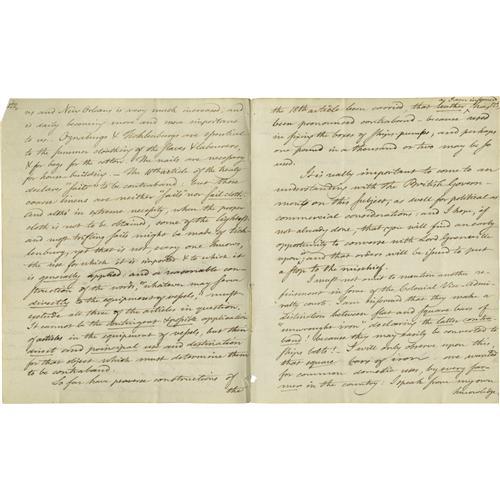 us and New Orleans is very much increased, and
is daily becoming more and more importance
to us. Oznabrigs & Ticklenburgs are essential
to the summer cloathing of the slaves & labourers,
& for bags for the cotton. The nails are necessary
for house building — The 18th article of the treaty
declares "sails" to be contraband. But these
coarse linens are neither "sails" nor sail cloth.
And altho' in extreme necessity, when the proper
cloth is not to be obtained, some of the lightest
and most trifling sails might be made of tick-
lenburg; yet that is not, every one knows,
the use for which it is imported & to which it
is generally applied; and a reasonable con-
struction of the words, "whatever may serve
directly to the equipment of vessels," must
exclude all three of the articles in question.
It cannot be the contingent & possible application
of articles in the equipment of vessels, but their
direct and principal use and destination
for that object which must determine them
to be contraband.
So far have perverse constructions of
the
I am informed,
the 18th article been carried that leather, has
been pronounced contraband - because used
in fixing the boxes of ships pumps, and perhaps
one pound in a thousand or two may be so
used.
It is really important to come to an
understanding with the British Govern-
ment on this subject; as well for political as
commercial considerations; and I hope, if
not already done, that you will find an early
opportunity to converse with Lord Grenville
upon; and that orders will be issued to put
a stop to the mischief.
I must not omit to mention another re-
finement in some of the Colonial Vice-Admi-
ralty courts. I am informed that they make a
distinction between flat and square bars of
"unwrought iron," declaring the latter contra-
band! because they may easily be converted to
ships bolts! I will only observe upon this,
that square bars of iron are wanted
for common domestic uses, by every far-
mer in the country: I speak from my own
knowledge